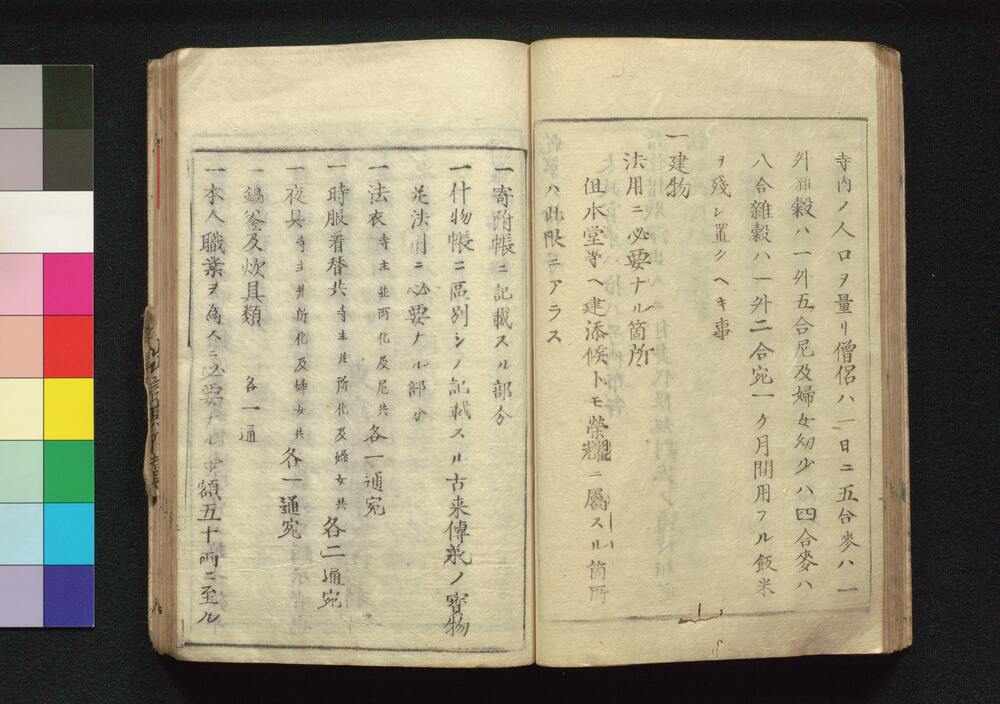 寺内ノ人口ヲ量リ僧侶ハ一日ニ五合麥ハ一
外雑穀ハ一外五合尼及婦女幼少ハ四合麥ハ
八合雜穀ハ一外二合宛一ケ月間用フル飯米
ヲ殘シ置クヘキ事
一建物
法用ニ必要ナル箇所
但水堂等ヘ建添候トモ榮耀ニ屬スル箇所
ハ此限ニアラス
一寄附帳ニ記載スル部分
一什物帳ニ區別シノ記載スル古来傳義ノ寳物
并法用ニ必要ナル部分
一法衣寺主並所化及尼共各一通宛
一時服着替共寺主并所化及婦女共各二通宛
一夜具寺主并所化及婦女共各一通宛
一鍋釜及炊具類 各一通
一本人職業ヲ為スニ必要ナル 額五十両ニ至ル